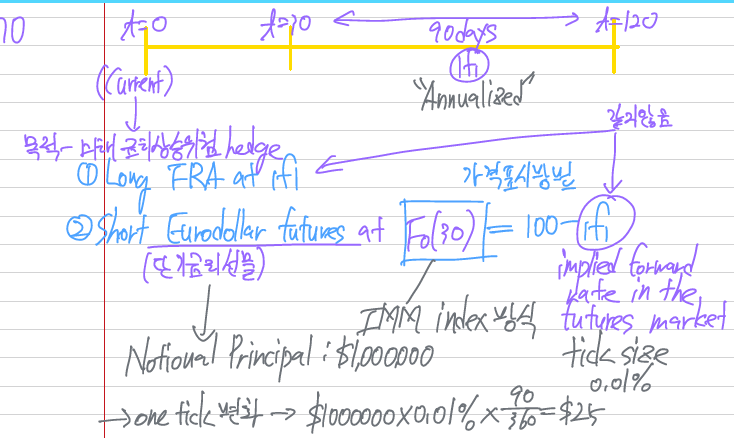 t=0 t=30 90days t=120
ifi
(Current) "Annualized"
같지않음
목적-미래 금리상승위험 hedge
① Long FRA at ifi
가격표시방법
② Short Eurodollar futures at F₀(30) = 100-ifi
(단기금리선물)
implied forward
rate in the
futures market
IMM index 방식
Notional Principal : $1,000,000
tick size
0.01%
→ one tick 변화 → $1000000×0.01%×90/360=$25